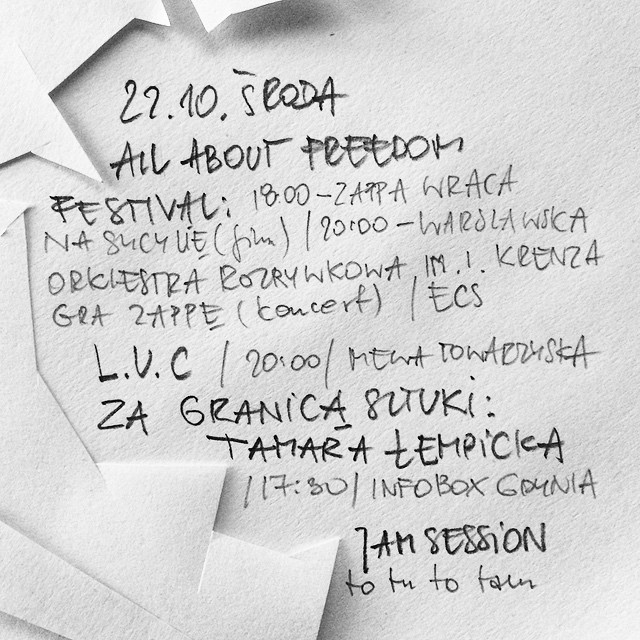 22.10. ŚRODA
ALL ABOUT FREEDOM
FESTIVAL: 18:00 - ZAPPA WRACA
NA SYCYLIĘ (film) | 20:00 - WARSZAWSKA
ORKIESTRA ROZRYWKOWA IM. I. KRENZA
GRA ZAPPĘ (koncert) | ECS
L.U.C | 20:00 | MEWA TOWARZYSKA
ZA GRANICĄ SZTUKI:
TAMARA ŁEMPICKA
| 17:30 | INFOBOX GDYNIA
JAM SESSION
to tu to tam